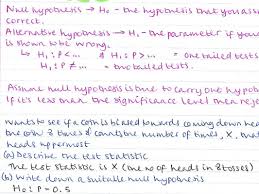 Null hypothesis → H₀ - the hypothesis that you ass
correct.
Alternative hypothesis → H₁ - the parameter if your
is shown to be wrong.
↳ H₁: P < ... ≠ H₁: P > ... = one tailed tests
↳ H₁: P ≠ ... = one tailed tests.
Assume null hypothesis is true to carry one hypoth
If it's less than the significance level then reje
wants to see if a coin is biased towards coming down hea
the coin 8 times & counts the number of times, X, that
heads uppermost
(a) Describe the test statistic
The test statistic is X (the no of heads in 8 tosses)
(b) Write down a suitable null hypothesis
H₀: P = 0.5